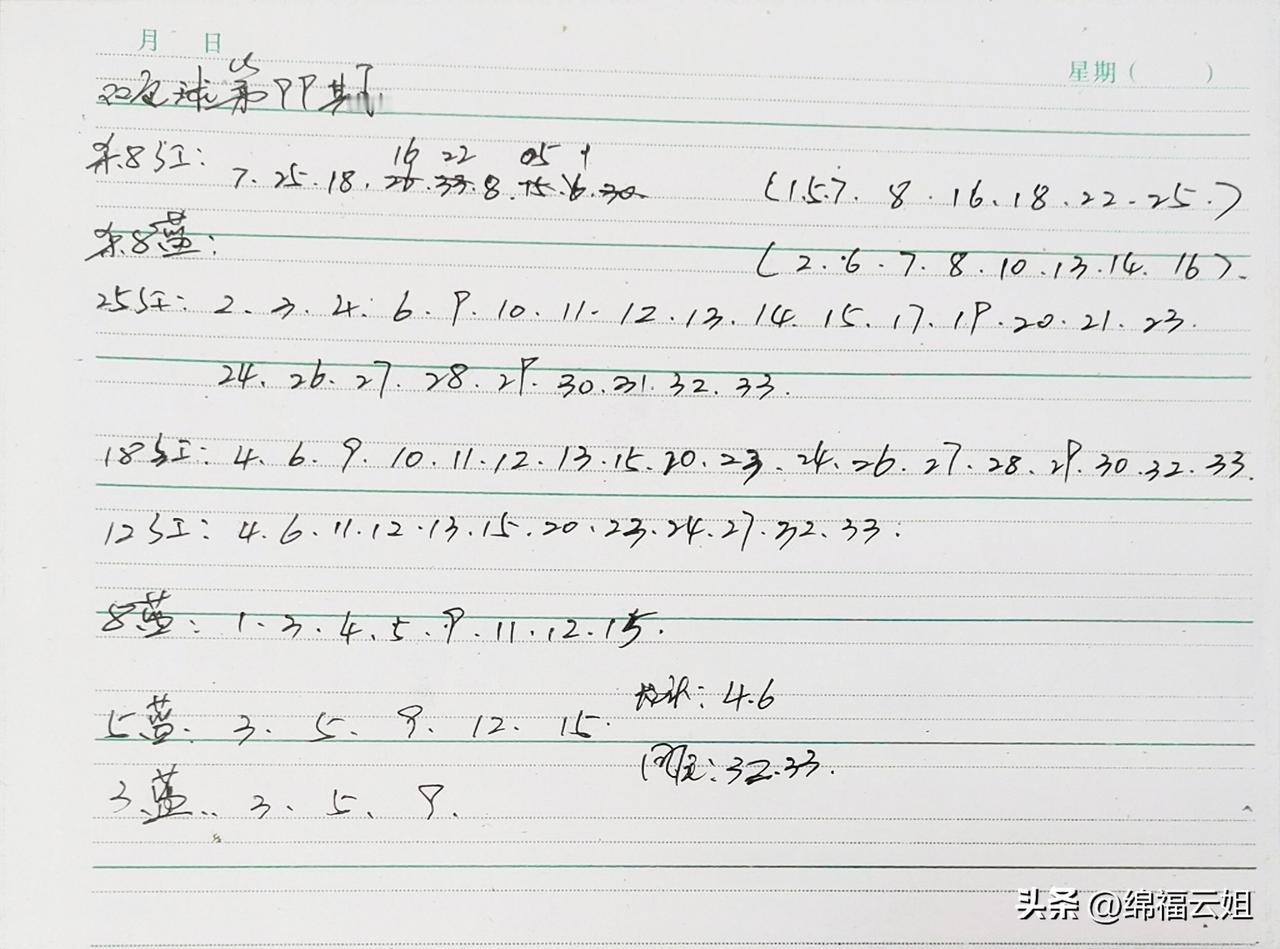 月 日
星期( )
双色球第99期
16 22 05 1
杀8红: 7.25.18.26.33.8.15.6.30. (1.5.7.8.16.18.22.25.)
杀8蓝: (2.6.7.8.10.13.14.16).
25红: 2.3.4.6.9.10.11.12.13.14.15.17.19.20.21.23.
24.26.27.28.29.30.31.32.33.
18红: 4.6.9.10.11.12.13.15.20.23.24.26.27.28.29.30.32.33.
12红: 4.6.11.12.13.15.20.23.24.27.32.33.
8蓝: 1.3.4.5.9.11.12.15.
5蓝: 3. 5. 9. 12. 15.
: 4.6
: 32.33.
3蓝: 3. 5. 9.
头条 @绵福云姐